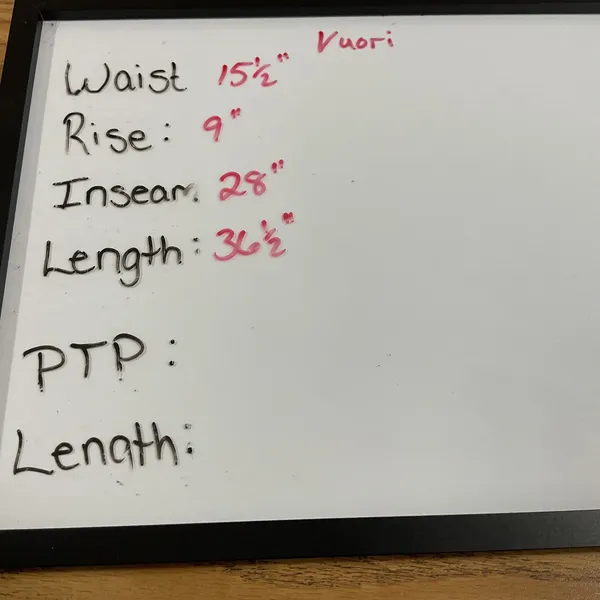 Vuori
Waist 15½"
Rise: 9"
Inseam. 28"
Length: 36½"
PTP:
Length: